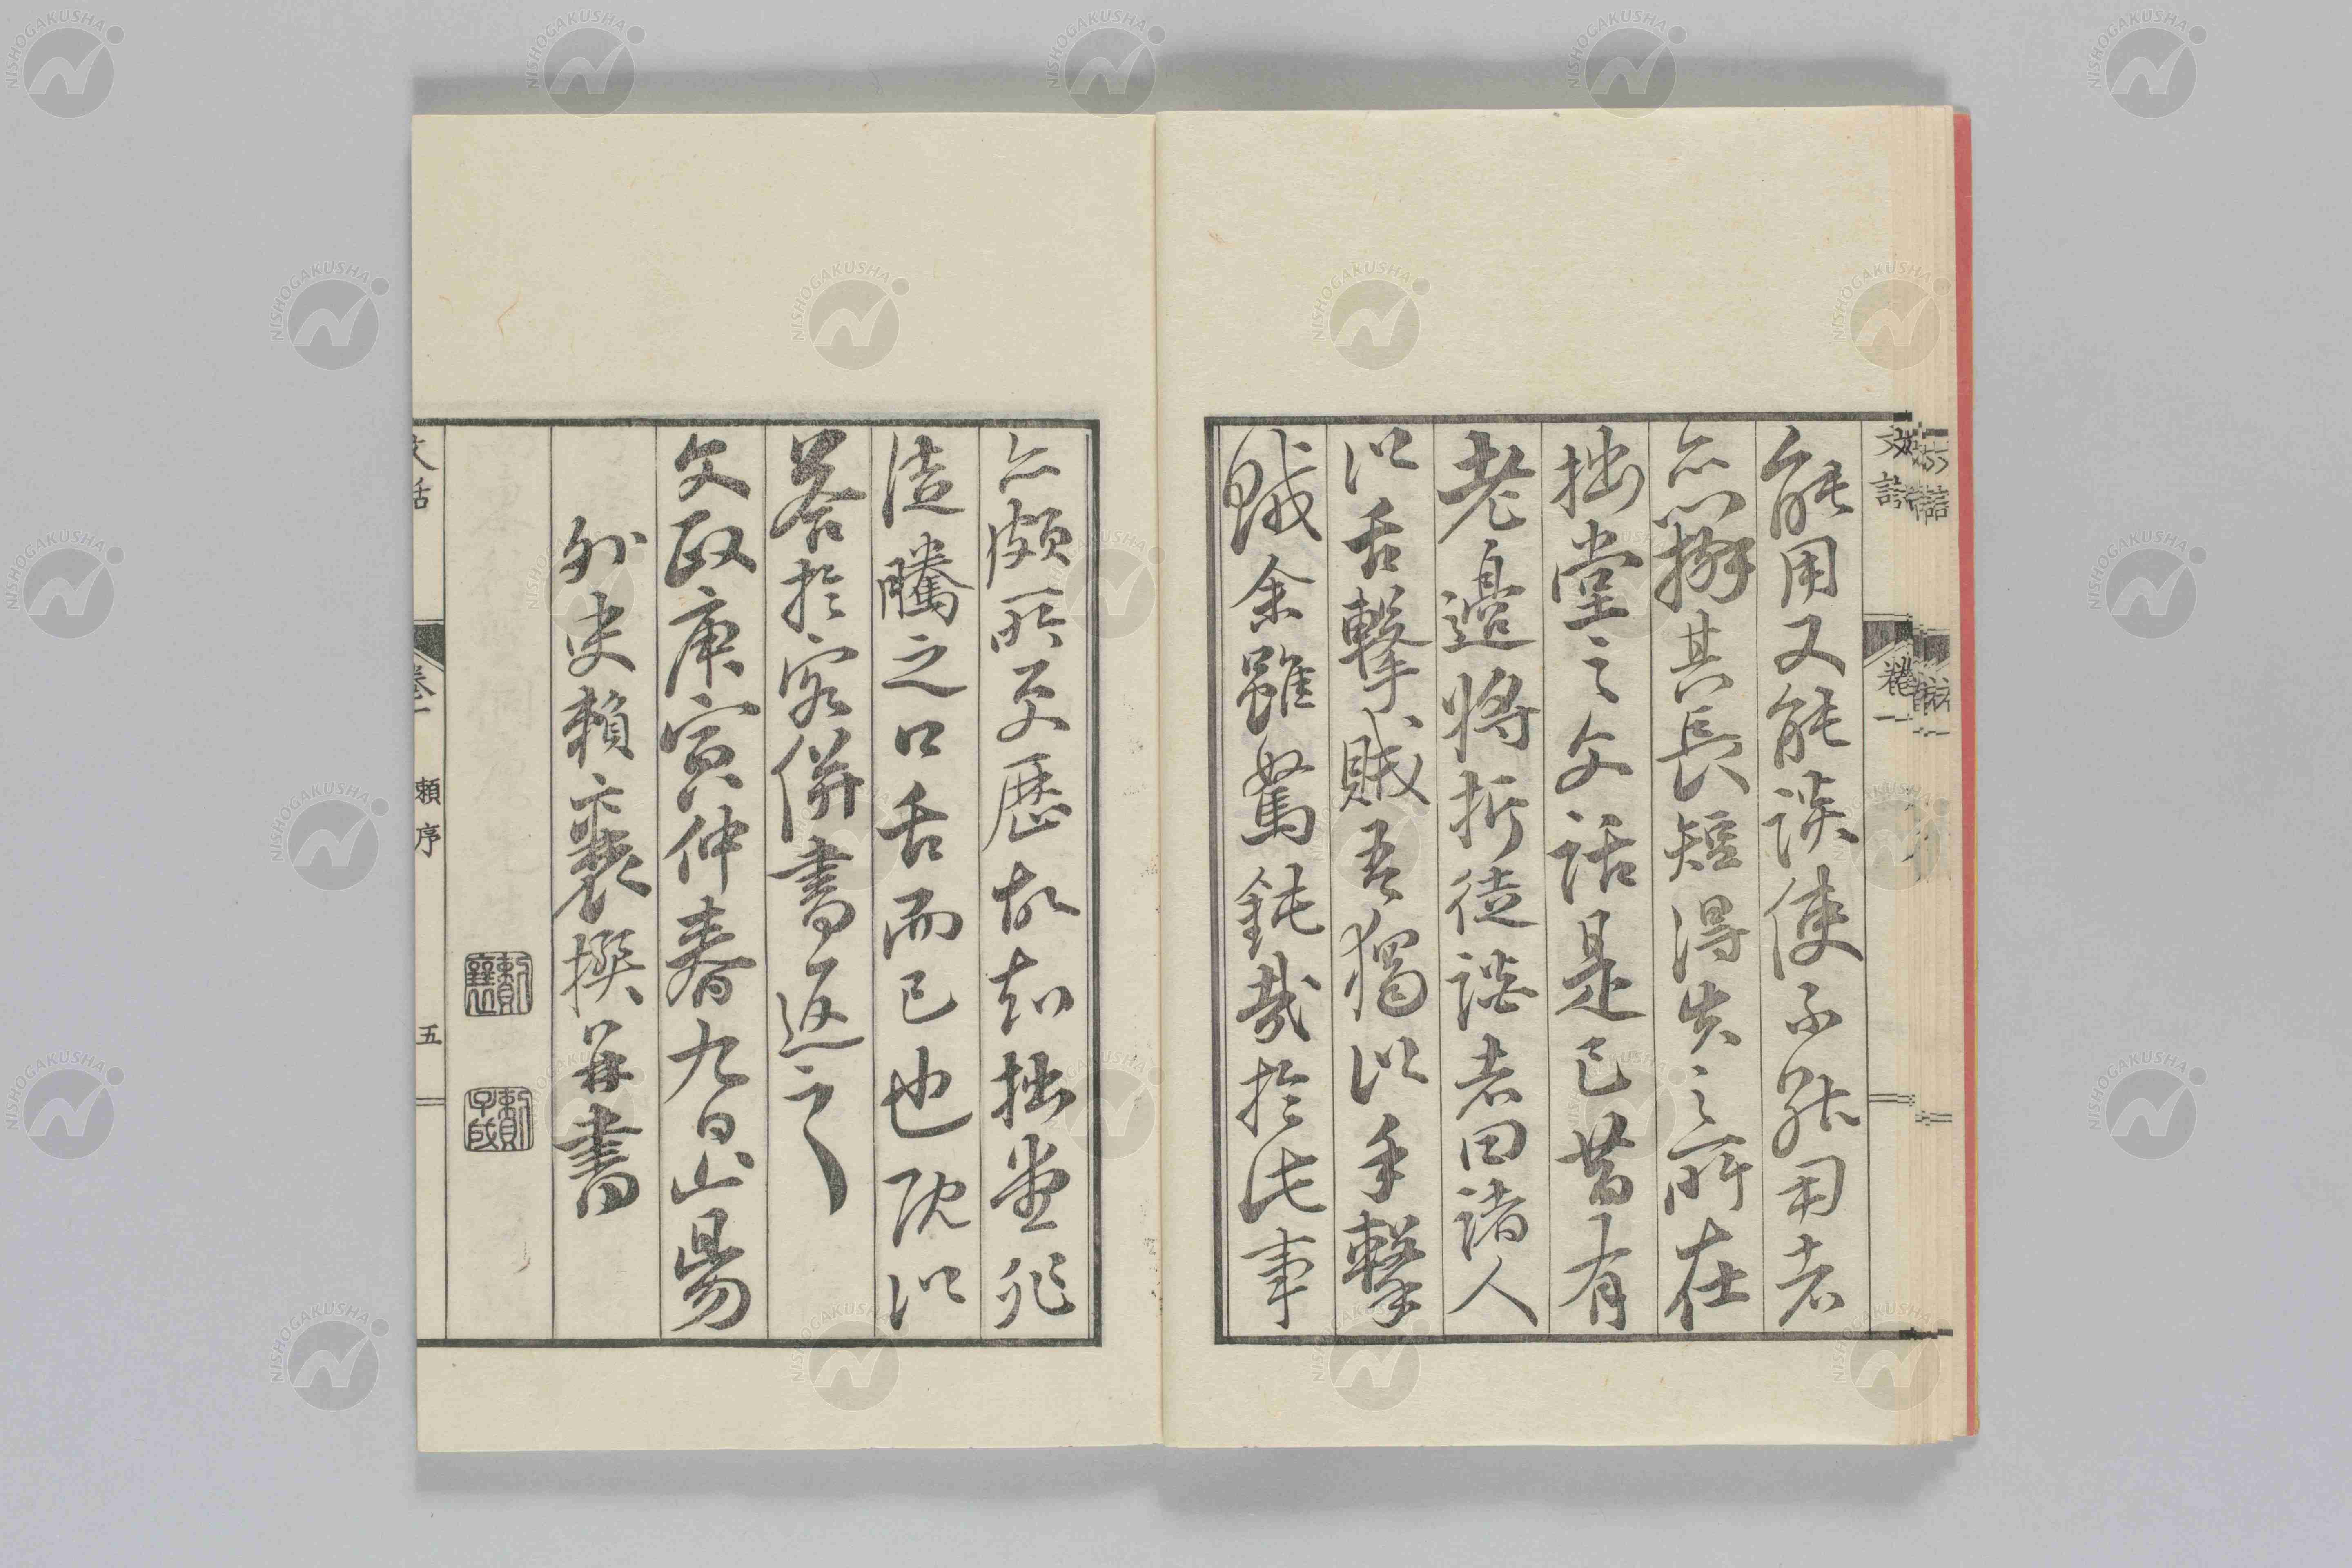 文話 卷一
能用又能談使不能用者
亦辨其長短得失之所在
拙堂之文話是已昔有
老邊將折徒談者曰諸人
以舌擊賊吾獨以手擊
賊余雖駑鈍哉於此事
亦頗所更歷故知拙堂非
徒騰之口舌而已也既以
答於客併書返之
文政庚寅仲春九日山陽
外史賴襄撰并書
賴襄
賴子成
文話 卷一 賴序 五
NISHOGAKUSHA